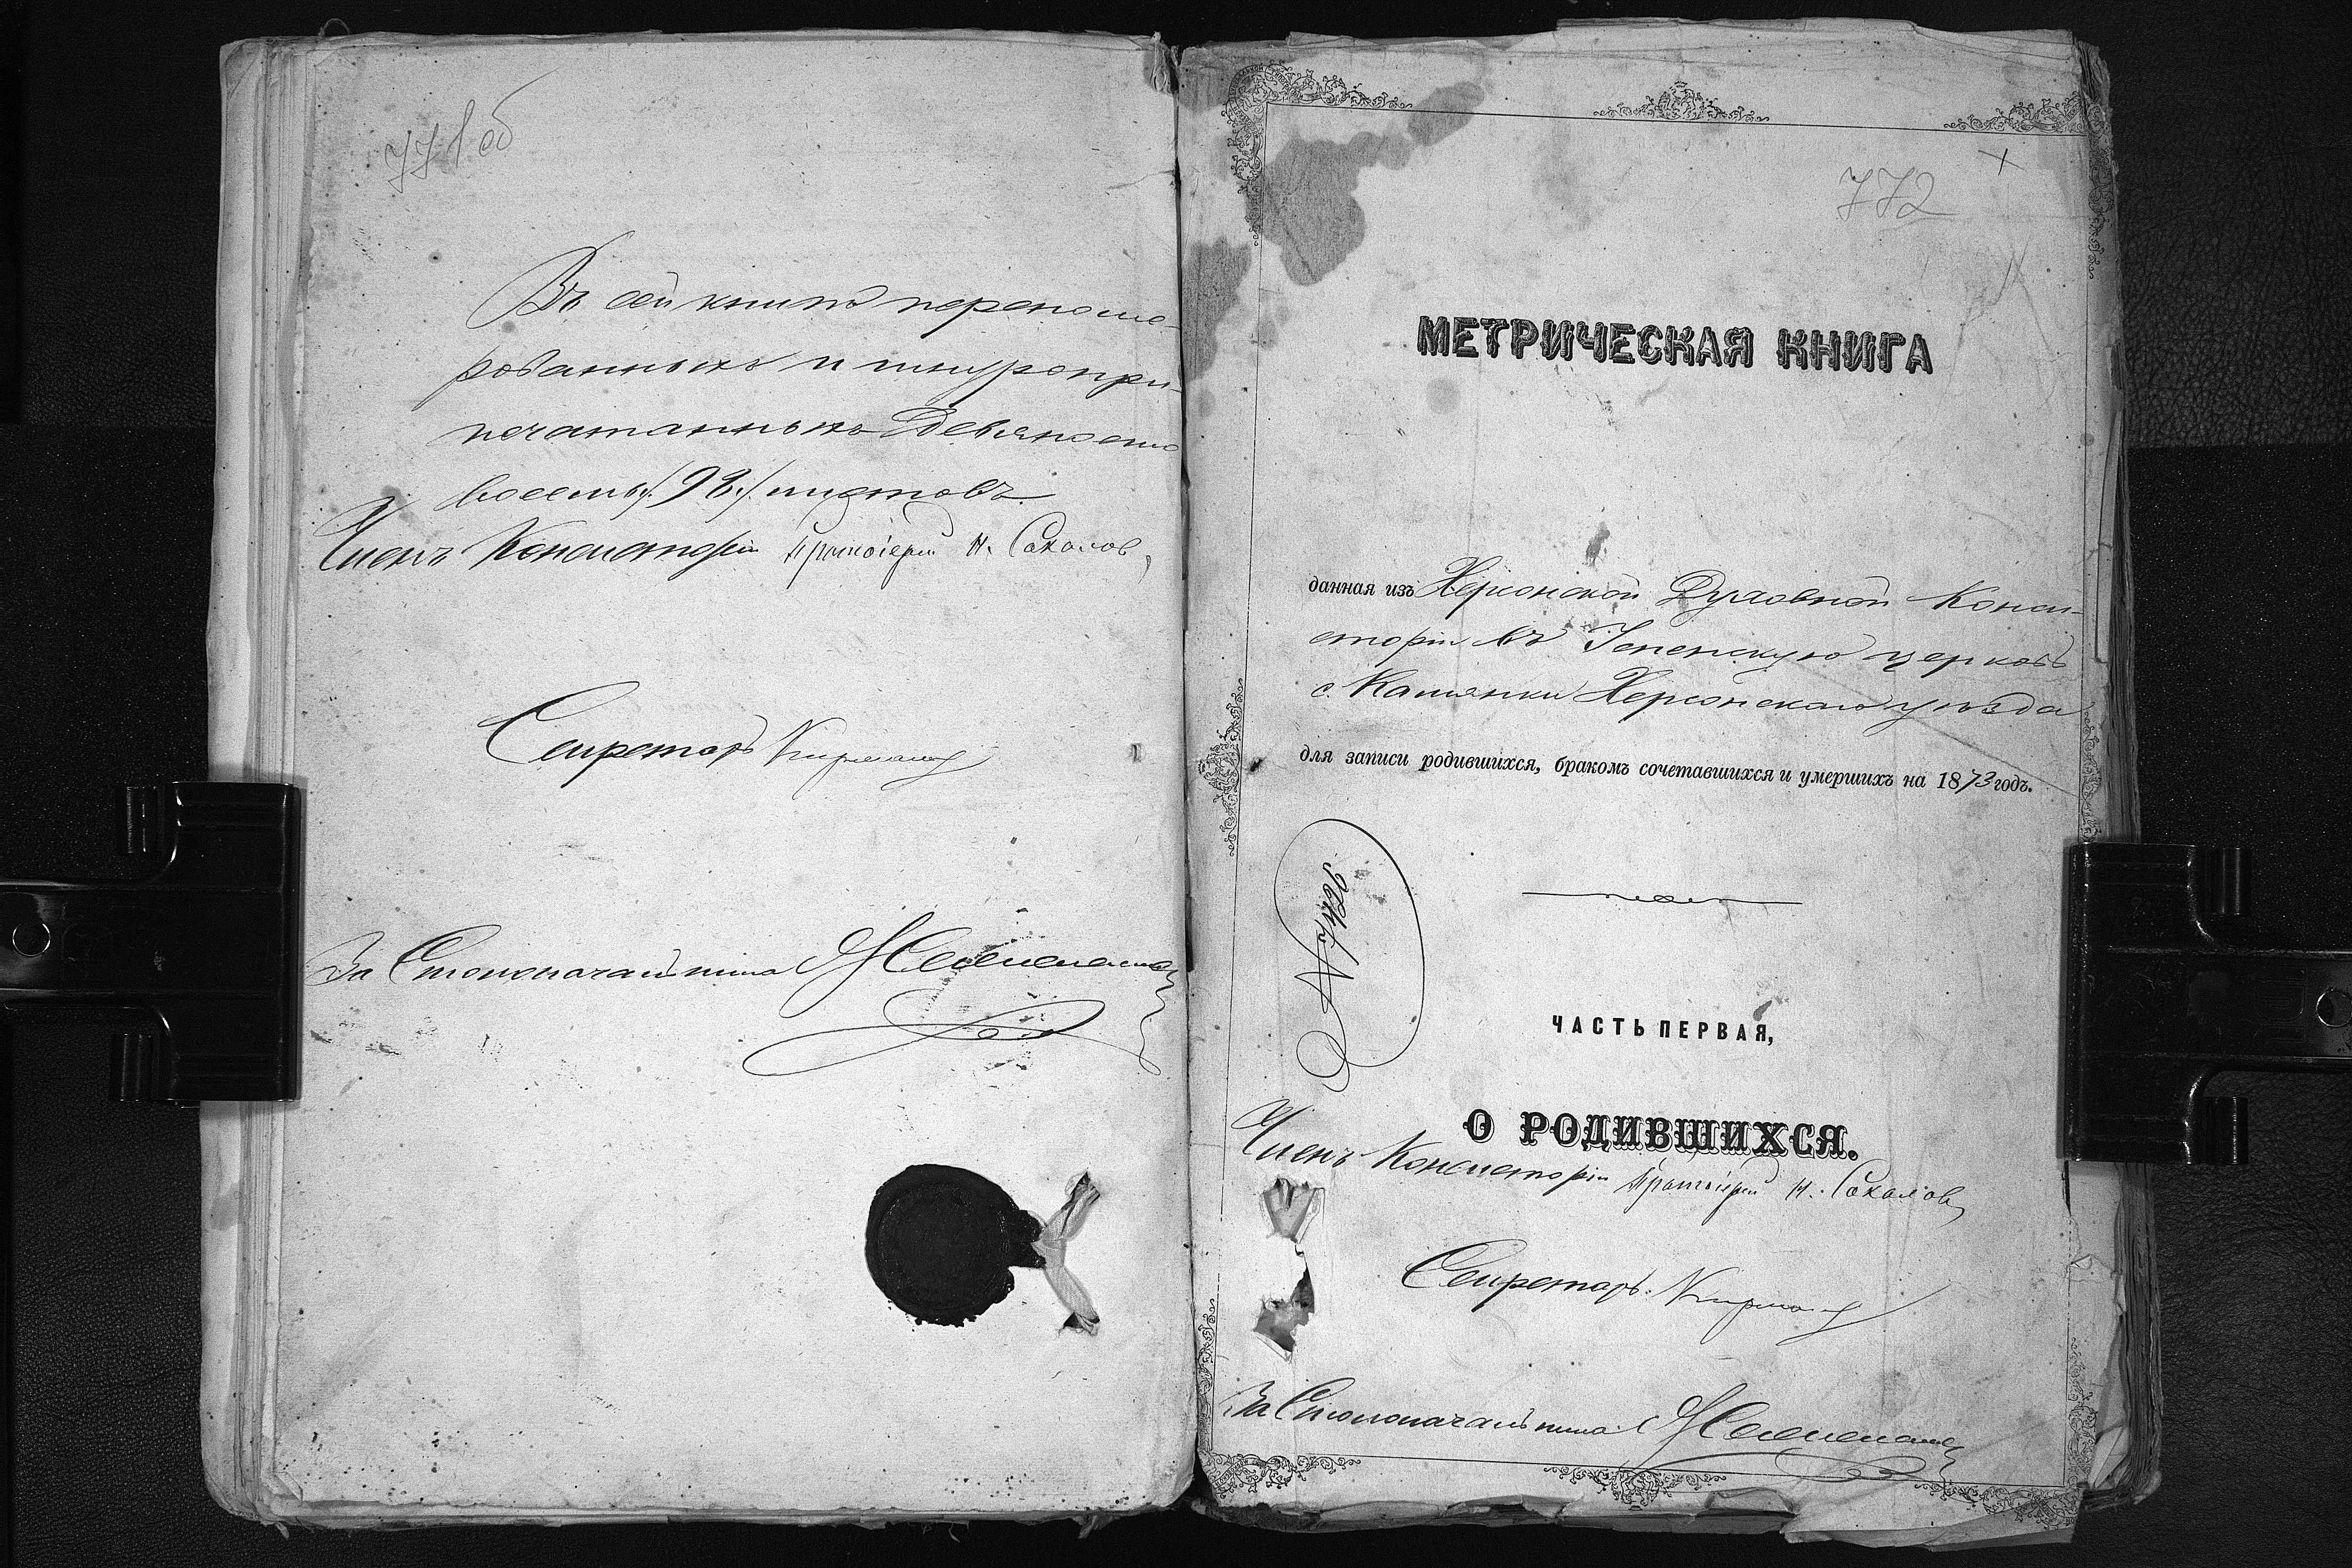 771 об
Въ сей книгѣ перенуме-
рованныхъ и шнуропри-
печатанныхъ Девяносто
восемь /98/ листовъ.
Членъ Консисторіи Протоіерей Н. Соколов
Секретарь
За Столоначальника
772
МЕТРИЧЕСКАЯ КНИГА
данная изъ Херсонской Духовной Конси-
сторіи въ Успенскую церковь
с. Камянки Херсонскаго уѣзда
для записи родившихся, бракомъ сочетавшихся и умершихъ на 1873 годъ.
№
ЧАСТЬ ПЕРВАЯ,
О РОДИВШИХСЯ.
Членъ Консисторіи Протоіерей Н. Соколов
Секретарь
За Столоначальника